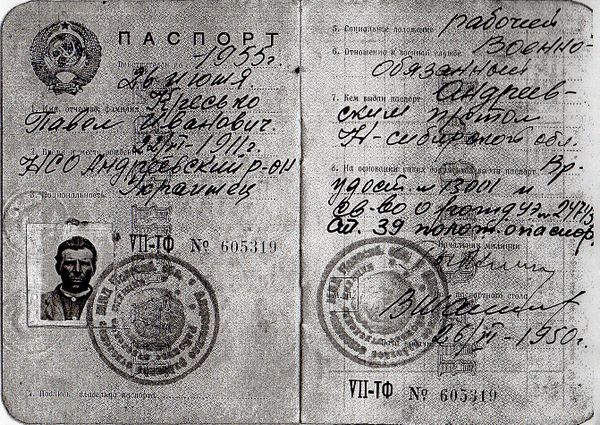 ПАСПОРТ
1955г.
26 июня
Кресько
1. Имя, отчество, фамилия
Павел Иванович.
1911г.
НСО Андреевский р-он
3. Национальность
Украинец
VII-ТФ № 605319
4. Подпись владельца паспорта
5. Социальное положение рабочий
6. Отношение к военной службе Военно-
обязанный
7. Кем выдан паспорт Андреев-
ским
Н-сибирской обл.
8. На основании каких документов выдан паспорт Вр.
удост. № 13001 и
св-во о рожд
Ст. 39 полож. о паспор.
Начальник милиции
паспортного стола
26/VI-1950г.
VII-ТФ № 605319